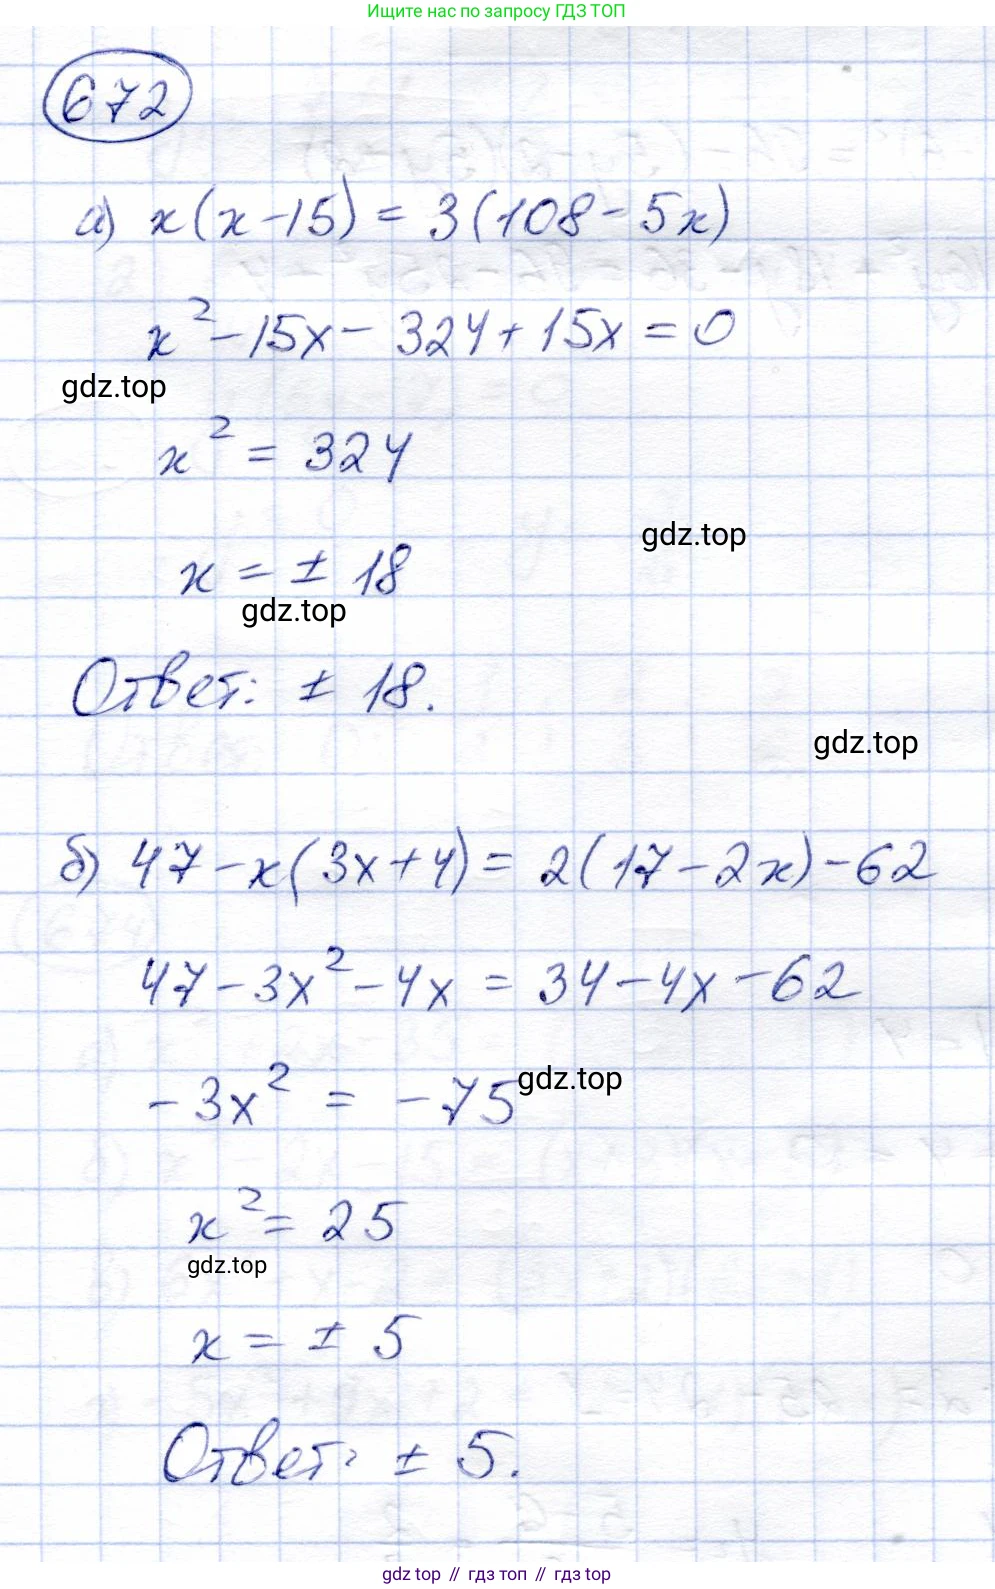 Ищите нас по запросу ГДЗ ТОП
672
а) x(x-15) = 3(108-5x)
x² - 15x - 324 + 15x = 0
gdz.top
x² = 324
gdz.top
x = ± 18
gdz.top
Ответ: ± 18.
gdz.top
б) 47 - x(3x+4) = 2(17-2x) - 62
47 - 3x² - 4x = 34 - 4x - 62
-3x² = -75
gdz.top
x² = 25
gdz.top
x = ± 5
Ответ: ± 5.
gdz.top // гдз топ // gdz top